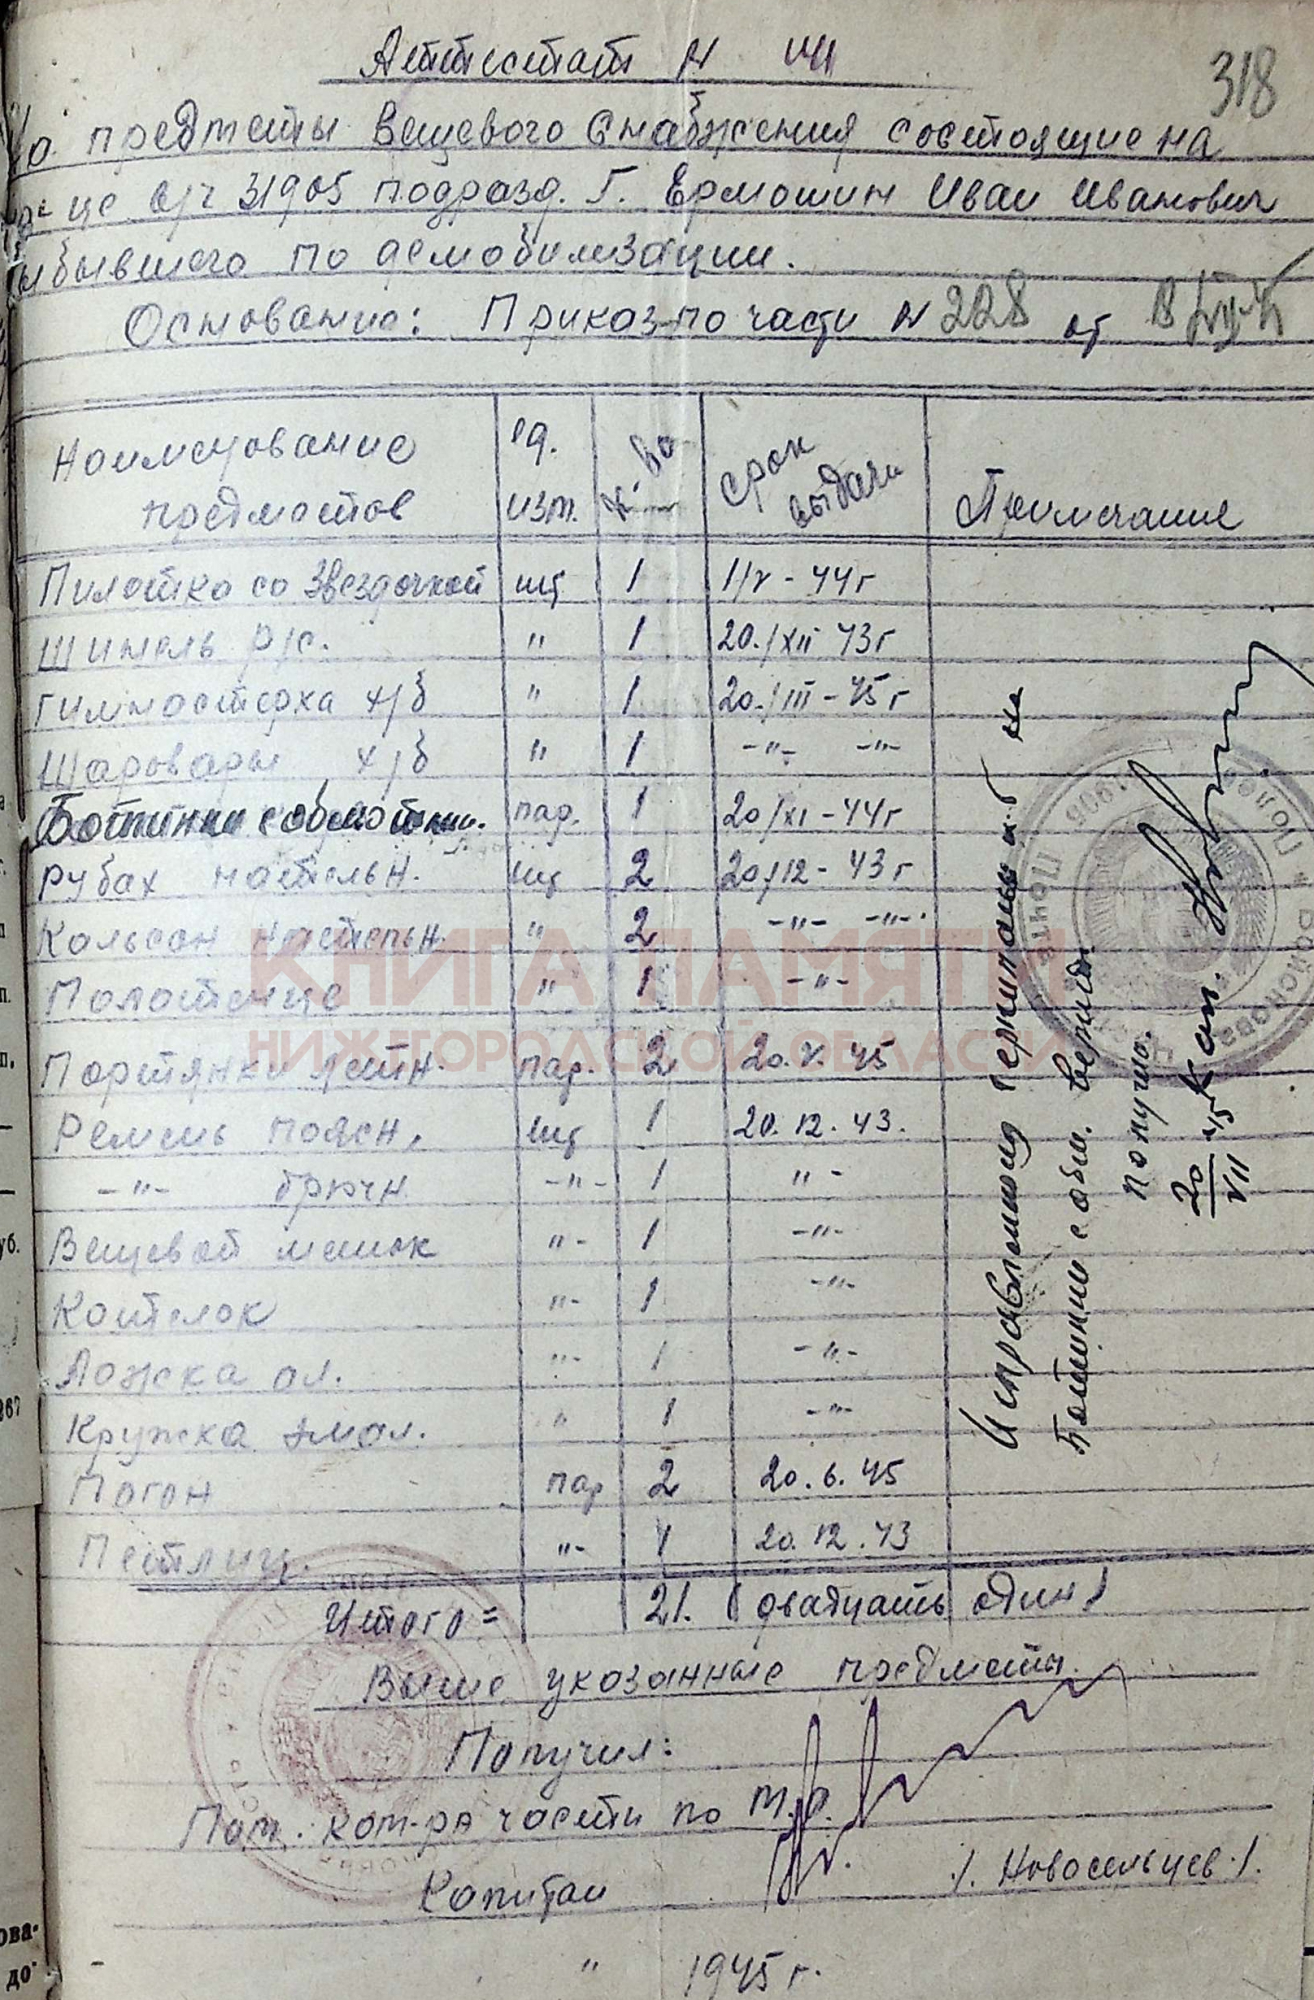 Аттестат N
318
На предметы вещевого снабжения состоящие на
в/ч 31905 подразд. Г. Ермошин Иван Иванович
убывшего по демобилизации.
Основание: Приказ по части N 228 от
Наименование предметов | ед. изм. | к-во | срок выдачи | Примечание
Пилотка со звездочкой шт 1 1/V - 44 г
Шинель р/с. " 1 20./XII 43 г
Гимнастерка х/б " 1 20./III - 45 г
Шаровары х/б " 1 -"- -"-
Ботинки с обмотками. пар. 1 20/XI - 44 г
Рубах нательн. шт 2 20/12 - 43 г
Кальсон нательн. " 2 -"- -"-
Полотенце " 1 -"-
Портянки летн. пар. 2 20.V.45
Ремень поясн. шт 1 20.12.43.
-"- брючн -"- 1 "-
Вещевой мешок "- 1 -"-
Котелок "- 1 -"-
Ложка ал. "- 1 -"-
Кружка эмал. " 1 -"-
Погон пар 2 20.6.45
Петлиц. "- 1 20.12.43
Итого = 21. (двадцать один)
Выше указанные предметы
Получил:
Пом. ком-ра части по
Капитан /. Новосельцев./.
" 1945 г.
Исправленному на
Ботинки с обм. верить.
получ.
20/VII 45 Кап.
Полевая Почта
31905
КНИГА ПАМЯТИ
НИЖЕГОРОДСКОЙ ОБЛАСТИ